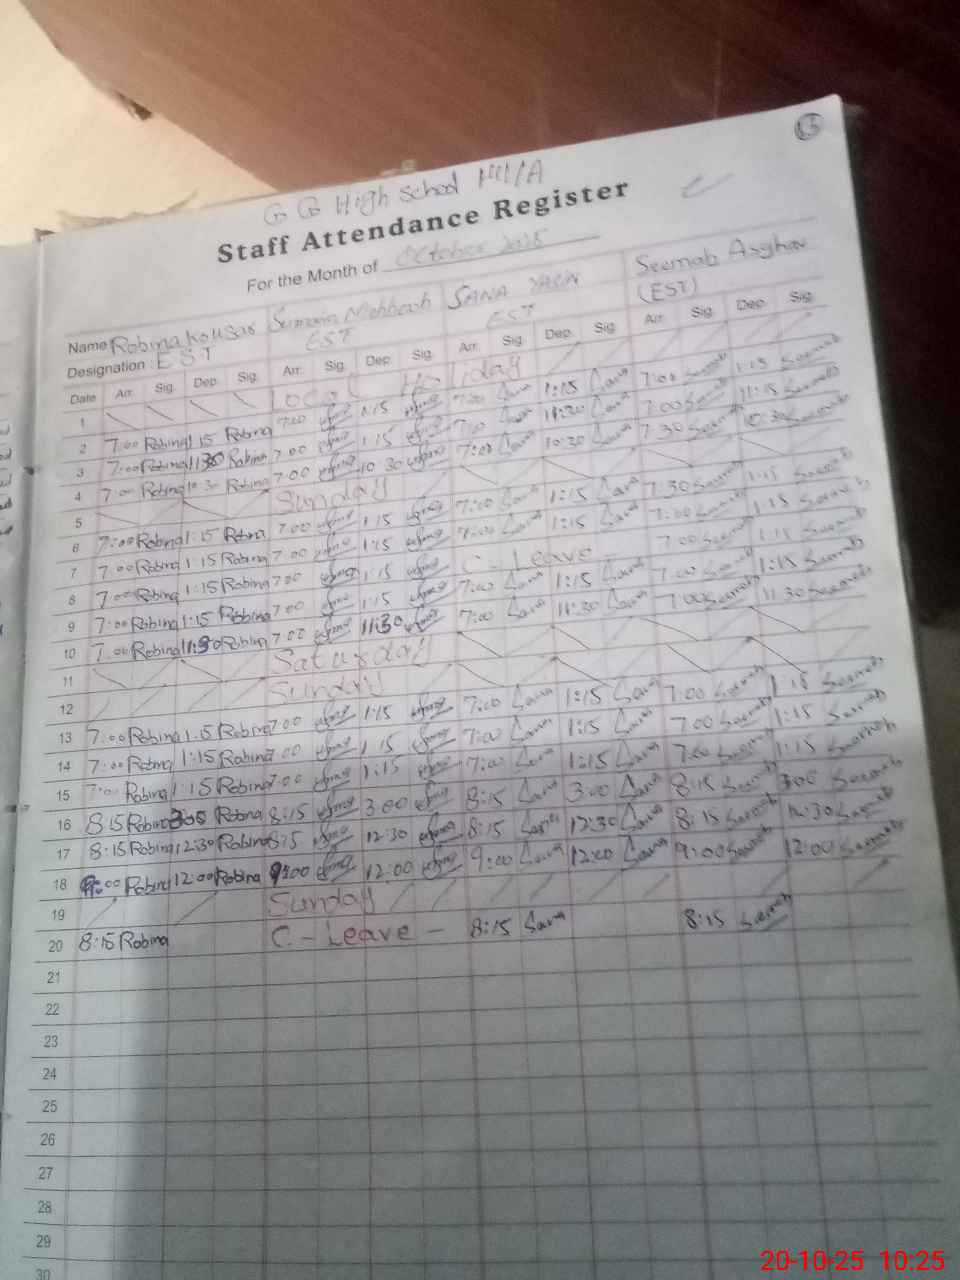 13
G G High School
Staff Attendance Register
For the Month of October 2025
Name Robina Kousar SANA YASIN Seemab Asghar
Designation: EST EST EST (EST)
Date Arr. Sig. Dep. Sig. Arr. Sig. Dep. Sig. Arr. Sig. Dep. Sig. Arr. Sig. Dep. Sig.
1 Local Holiday
2 7:00 Robina 1:15 Robina 7:00 1:15 7:00 Sana 1:15 Sana 7:00 Seemab 1:15 Seemab
3 7:00 Robina 11:30 Robina 7:00 1:15 7:00 Sana 11:30 Sana 7:00 Seemab 11:15 Seemab
4 7:00 Robina 10:30 Robina 7:00 10:30 7:00 Sana 10:30 Sana 7:30 Seemab 10:30 Seemab
5 Sunday
6 7:00 Robina 1:15 Robina 7:00 1:15 7:00 Sana 1:15 Sana 7:30 Seemab 1:15 Seemab
7 7:00 Robina 1:15 Robina 7:00 1:15 7:00 Sana 1:15 Sana 7:00 Seemab 1:15 Seemab
8 7:00 Robina 1:15 Robina 7:00 1:15 C - Leave - 7:00 Seemab 1:15 Seemab
9 7:00 Robina 1:15 Robina 7:00 1:15 7:00 Sana 1:15 Sana 7:00 Seemab 1:15 Seemab
10 7:00 Robina 11:30 Robina 7:00 11:30 7:00 Sana 11:30 Sana 7:00 Seemab 11:30 Seemab
11 Saturday
12 Sunday
13 7:00 Robina 1:15 Robina 7:00 1:15 7:00 Sana 1:15 Sana 7:00 Seemab 1:15 Seemab
14 7:00 Robina 1:15 Robina 7:00 1:15 7:00 Sana 1:15 Sana 7:00 Seemab 1:15 Seemab
15 7:00 Robina 1:15 Robina 7:00 1:15 7:00 Sana 1:15 Sana 7:00 Seemab 1:15 Seemab
16 8:15 Robina 3:00 Robina 8:15 3:00 8:15 Sana 3:00 Sana 8:15 Seemab 3:00 Seemab
17 8:15 Robina 12:30 Robina 8:15 12:30 8:15 Sana 12:30 Sana 8:15 Seemab 12:30 Seemab
18 9:00 Robina 12:00 Robina 9:00 12:00 9:00 Sana 12:00 Sana 9:00 Seemab 12:00 Seemab
19 Sunday
20 8:15 Robina C. - Leave - 8:15 Sana 8:15 Seemab
21
22
23
24
25
26
27
28
29
30
20-10-25 10:25